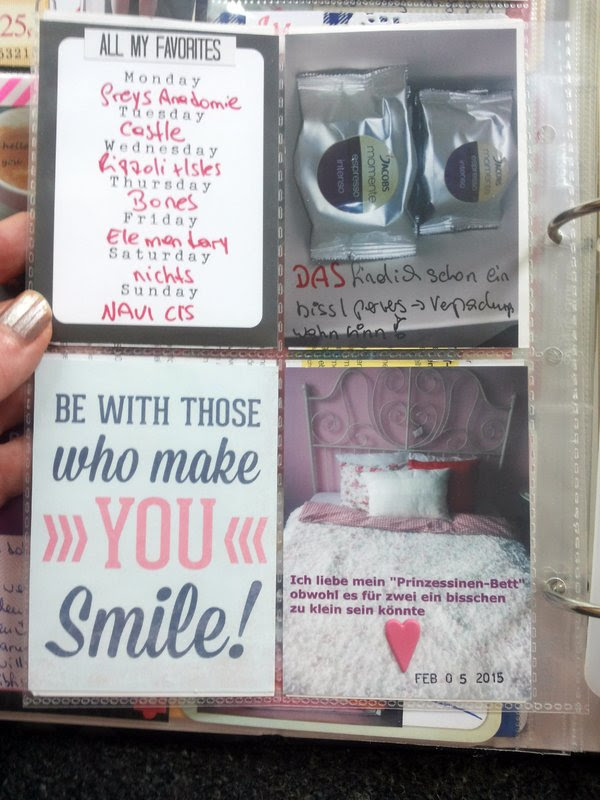 ALL MY FAVORITES
Monday
Greys Anadomie
Tuesday
Castle
Wednesday
Rizzoli + Isles
Thursday
Bones
Friday
Elementary
Saturday
nichts
Sunday
NAVI CIS
JACOBS
momente
espresso
intenso
JACOBS
momente
espresso
intenso
DAS find ich schon ein
bissl pervers → Verpackungs
wahnsinn!
BE WITH THOSE
who make
YOU
Smile!
Ich liebe mein "Prinzessinen-Bett"
obwohl es für zwei ein bisschen
zu klein sein könnte
FEB 05 2015
25,
5321
hello